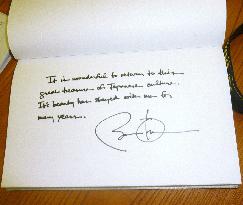 It is wonderful to return to this
great treasure of Japanese culture.
It's beauty has stayed with me for
many years.